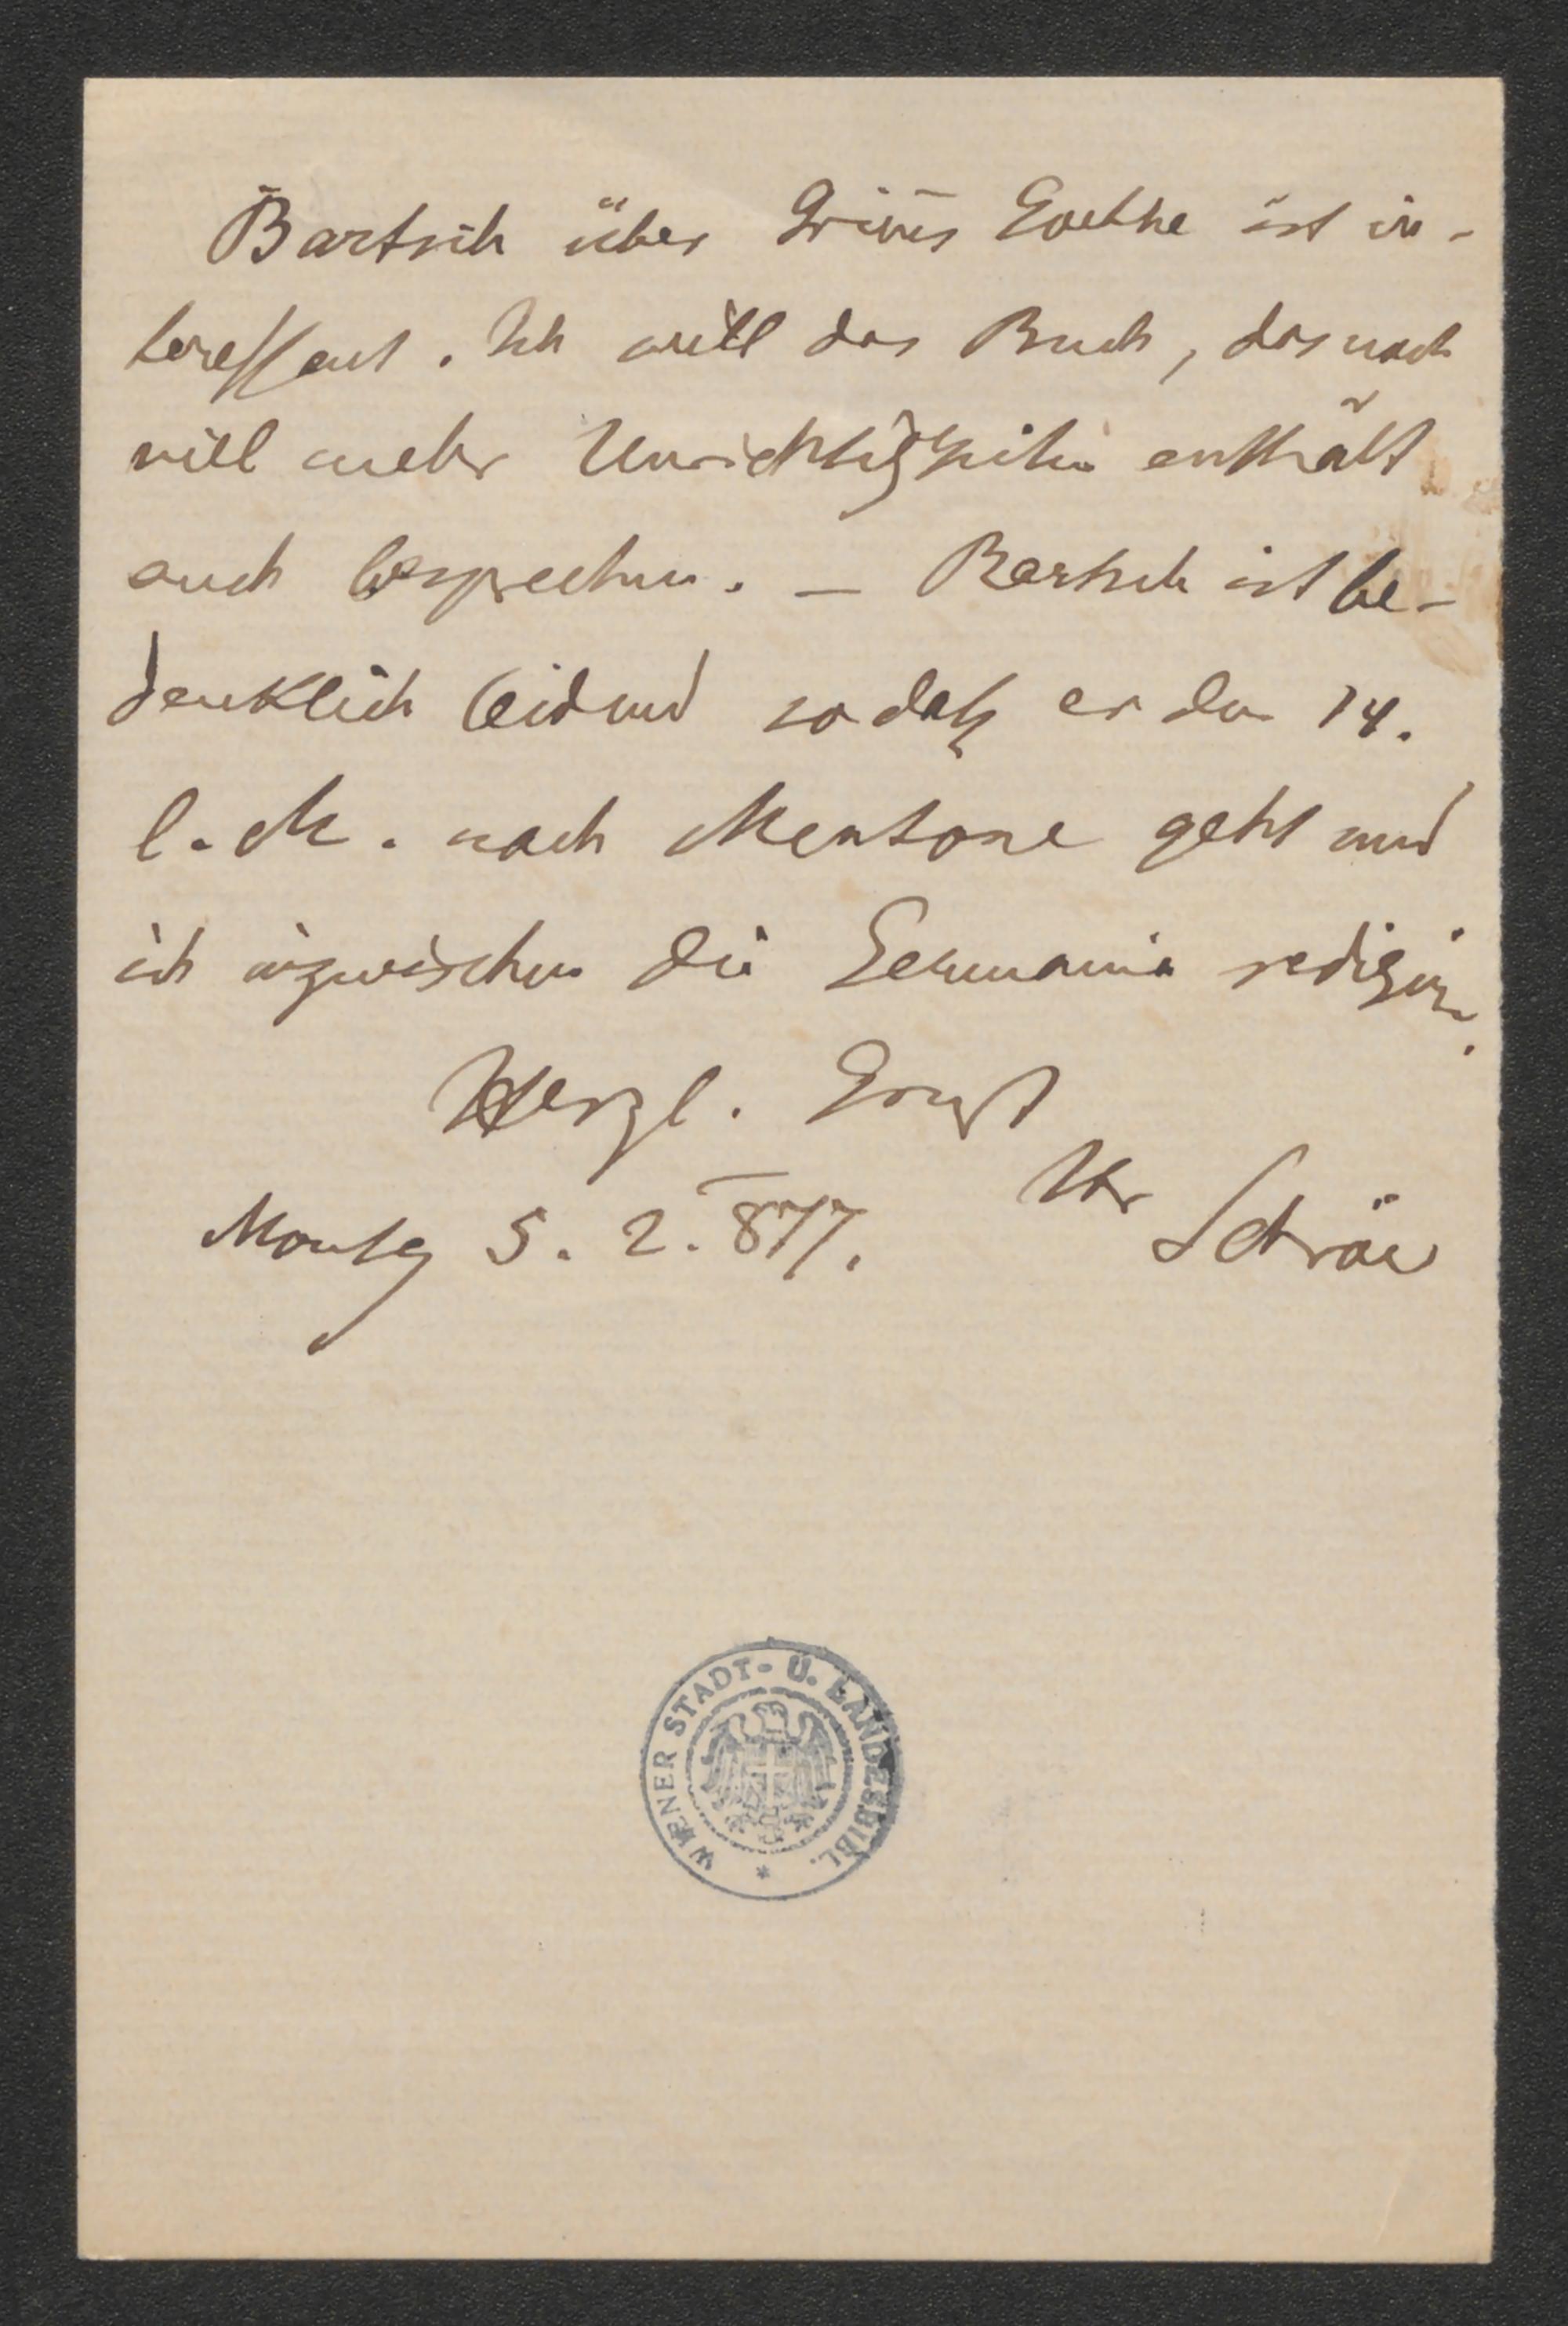 Bartsch über Grim̅s Goethe ist in-
teressant. Ich will das Buch, das noch
viel mehr Unrichtigkeiten enthält
auch besprechen. — Bartsch ist be-
denklich leidend sodaß er den 14.
l. M. nach Mentone geht und
ich inzwischen die Germania redigire.
Herzl. Gruß
Ihr Schröer
Montag 5. 2. 877.
WIENER STADT- U. LANDESBIBL.